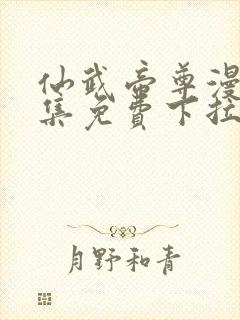 仙武帝尊漫
集免费下拉
月野和青